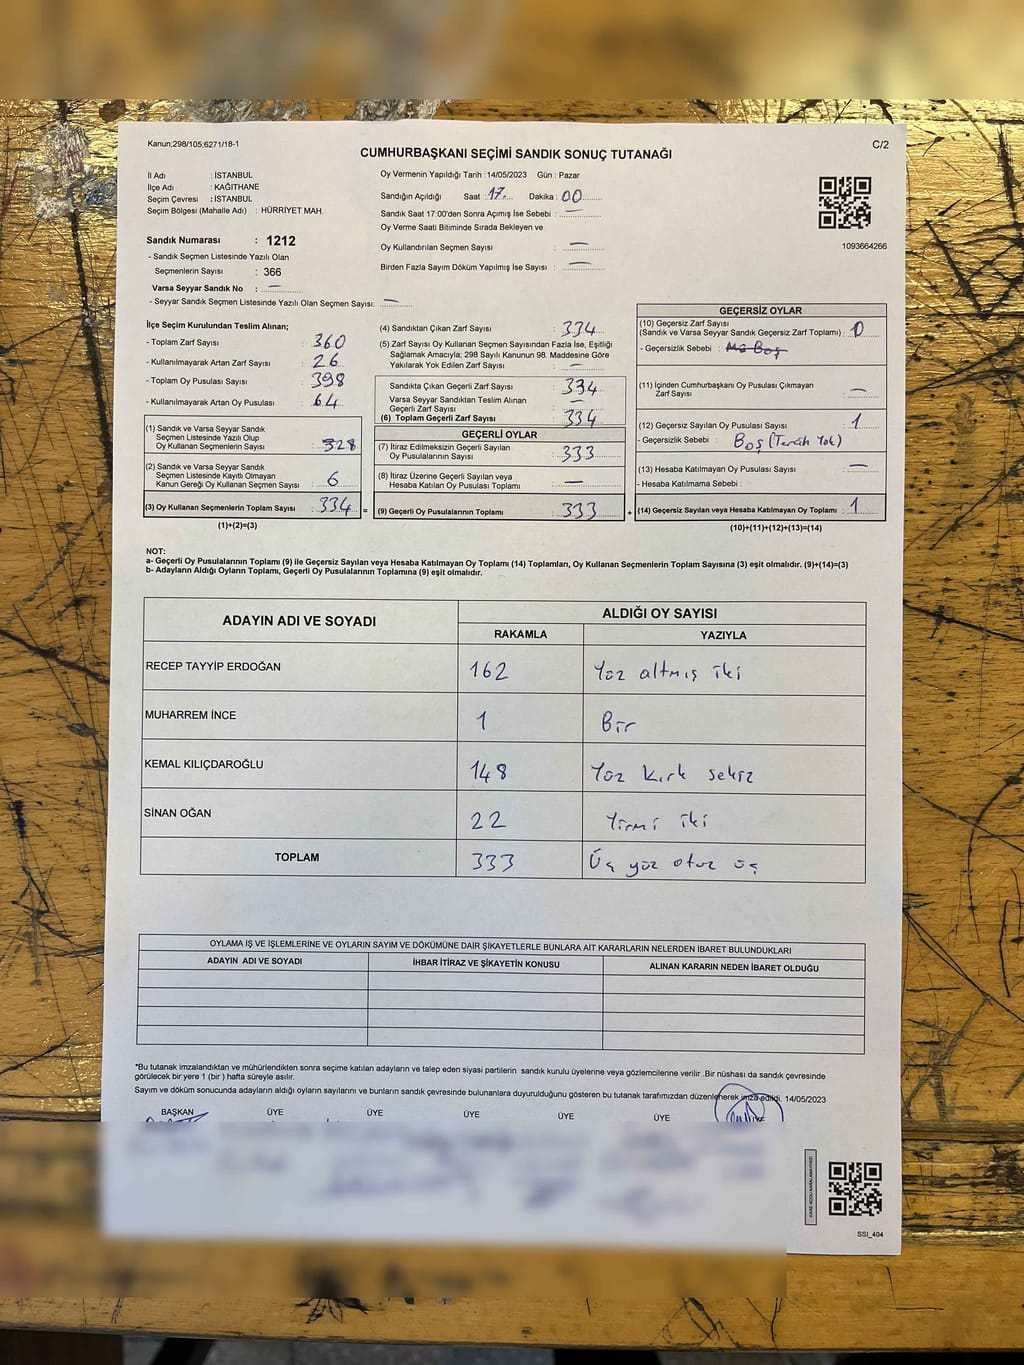 Kanun;298/105,6271/18-1
C/2
CUMHURBAŞKANI SEÇİMİ SANDIK SONUÇ TUTANAĞI
İl Adı : İSTANBUL
İlçe Adı : KAĞITHANE
Seçim Çevresi : İSTANBUL
Seçim Bölgesi (Mahalle Adı) : HÜRRİYET MAH.
Sandık Numarası : 1212
- Sandık Seçmen Listesinde Yazılı Olan
Seçmenlerin Sayısı : 366
Varsa Seyyar Sandık No : —
- Seyyar Sandık Seçmen Listesinde Yazılı Olan Seçmen Sayısı: —
Oy Vermenin Yapıldığı Tarih : 14/05/2023 Gün : Pazar
Sandığın Açıldığı Saat : 17 Dakika : 00
Sandık Saat 17:00'den Sonra Açımış İse Sebebi : —
Oy Verme Saati Bitiminde Sırada Bekleyen ve
Oy Kullandırılan Seçmen Sayısı : —
Birden Fazla Sayım Döküm Yapılmış İse Sayısı : —
1093664266
İlçe Seçim Kurulundan Teslim Alınan;
- Toplam Zarf Sayısı : 360
- Kullanılmayarak Artan Zarf Sayısı : 26
- Toplam Oy Pusulası Sayısı : 398
- Kullanılmayarak Artan Oy Pusulası : 64
(1) Sandık ve Varsa Seyyar Sandık
Seçmen Listesinde Yazılı Olup
Oy Kullanan Seçmenlerin Sayısı : 328
(2) Sandık ve Varsa Seyyar Sandık
Seçmen Listesinde Kayıtlı Olmayan
Kanun Gereği Oy Kullanan Seçmen Sayısı : 6
(3) Oy Kullanan Seçmenlerin Toplam Sayısı : 334 =
(1)+(2)=(3)
(4) Sandıktan Çıkan Zarf Sayısı : 334
(5) Zarf Sayısı Oy Kullanan Seçmen Sayısından Fazla İse, Eşitliği
Sağlamak Amacıyla; 298 Sayılı Kanunun 98. Maddesine Göre
Yakılarak Yok Edilen Zarf Sayısı : —
Sandıkta Çıkan Geçerli Zarf Sayısı : 334
Varsa Seyyar Sandıktan Teslim Alınan
Geçerli Zarf Sayısı : —
(6) Toplam Geçerli Zarf Sayısı : 334
GEÇERLİ OYLAR
(7) İtiraz Edilmeksizin Geçerli Sayılan
Oy Pusulalarının Sayısı : 333
(8) İtiraz Üzerine Geçerli Sayılan veya
Hesaba Katılan Oy Pusulası Toplamı : —
(9) Geçerli Oy Pusulalarının Toplamı : 333 +
GEÇERSİZ OYLAR
(10) Geçersiz Zarf Sayısı
(Sandık ve Varsa Seyyar Sandık Geçersiz Zarf Toplamı) : 0
- Geçersizlik Sebebi : Boş
(11) İçinden Cumhurbaşkanı Oy Pusulası Çıkmayan
Zarf Sayısı : —
(12) Geçersiz Sayılan Oy Pusulası Sayısı : 1
- Geçersizlik Sebebi : Boş (Tercih Yok)
(13) Hesaba Katılmayan Oy Pusulası Sayısı : —
- Hesaba Katılmama Sebebi :
(14) Geçersiz Sayılan veya Hesaba Katılmayan Oy Toplamı : 1
(10)+(11)+(12)+(13)=(14)
NOT:
a- Geçerli Oy Pusulalarının Toplamı (9) ile Geçersiz Sayılan veya Hesaba Katılmayan Oy Toplamı (14) Toplamları, Oy Kullanan Seçmenlerin Toplam Sayısına (3) eşit olmalıdır. (9)+(14)=(3)
b- Adayların Aldığı Oyların Toplamı, Geçerli Oy Pusulalarının Toplamına (9) eşit olmalıdır.
ADAYIN ADI VE SOYADI
ALDIĞI OY SAYISI
RAKAMLA YAZIYLA
RECEP TAYYİP ERDOĞAN 162 Yüz altmış iki
MUHARREM İNCE 1 Bir
KEMAL KILIÇDAROĞLU 148 Yüz kırk sekiz
SİNAN OĞAN 22 Yirmi iki
TOPLAM 333 Üç yüz otuz üç
OYLAMA İŞ VE İŞLEMLERİNE VE OYLARIN SAYIM VE DÖKÜMÜNE DAİR ŞİKAYETLERLE BUNLARA AİT KARARLARIN NELERDEN İBARET BULUNDUKLARI
ADAYIN ADI VE SOYADI İHBAR İTİRAZ VE ŞİKAYETİN KONUSU ALINAN KARARIN NEDEN İBARET OLDUĞU
*Bu tutanak imzalandıktan ve mühürlendikten sonra seçime katılan adayların ve talep eden siyasi partilerin sandık kurulu üyelerine veya gözlemcilerine verilir .Bir nüshası da sandık çevresinde
görülecek bir yere 1 (bir ) hafta süreyle asılır.
Sayım ve döküm sonucunda adayların aldığı oyların sayılarını ve bunların sandık çevresinde bulunanlara duyurulduğunu gösteren bu tutanak tarafımızdan düzenlenerek imza edildi. 14/05/2023
BAŞKAN ÜYE ÜYE ÜYE ÜYE ÜYE
SSI_404